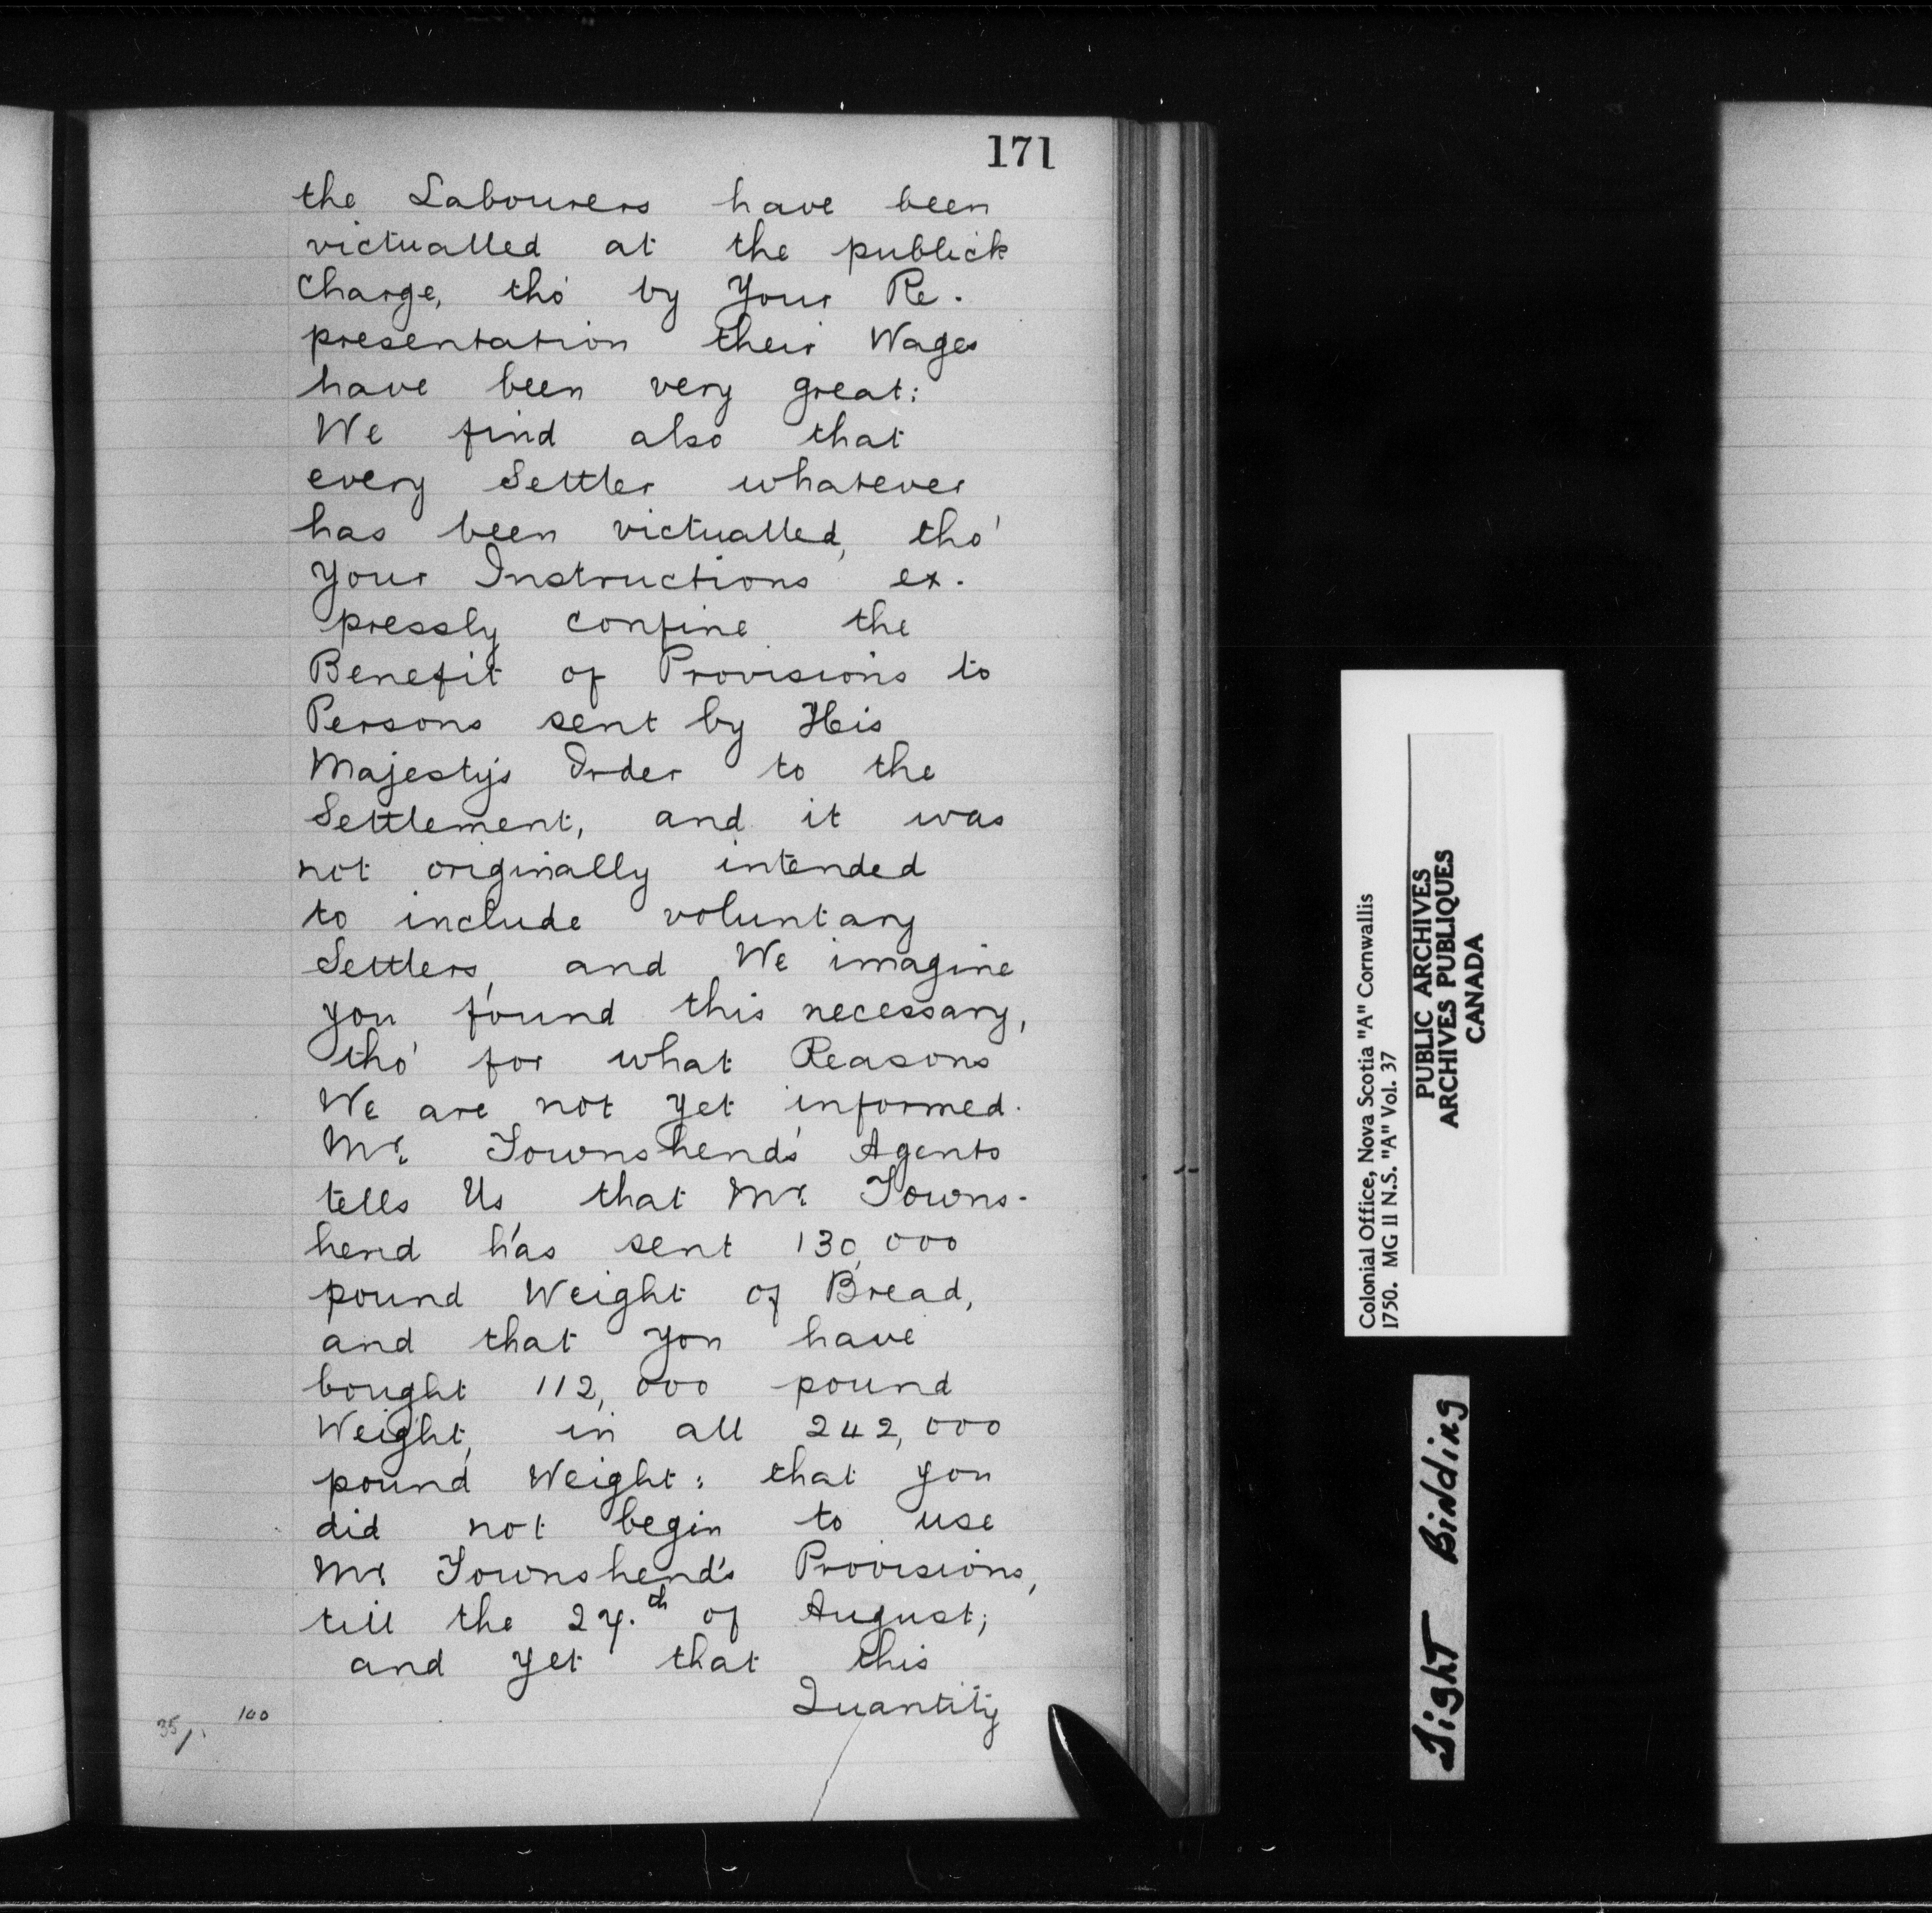 171
the Labourers have been
victualled at the publick
Charge, tho' by Your Re-
presentation their Wages
have been very great:
We find also that
every Settler whatever
has been victualled, tho'
your Instructions ex-
pressly confine the
Benefit of Provisions to
Persons sent by His
Majesty's Order to the
Settlement, and it was
not originally intended
to include voluntary
Settlers, and We imagine
you found this necessary,
tho' for what Reasons
We are not yet informed.
Mr. Townshend's Agents
tells Us that Mr. Towns-
hend has sent 130,000
pound Weight of Bread,
and that you have
bought 112,000 pound
Weight, in all 242,000
pound Weight: that you
did not begin to use
Mr. Townshend's Provisions,
till the 27.th of August;
and yet that this
Quantity
35/. 100
Colonial Office, Nova Scotia "A" Cornwallis
1750. MG 11 N.S. "A" Vol. 37
PUBLIC ARCHIVES
ARCHIVES PUBLIQUES
CANADA
Tight Binding